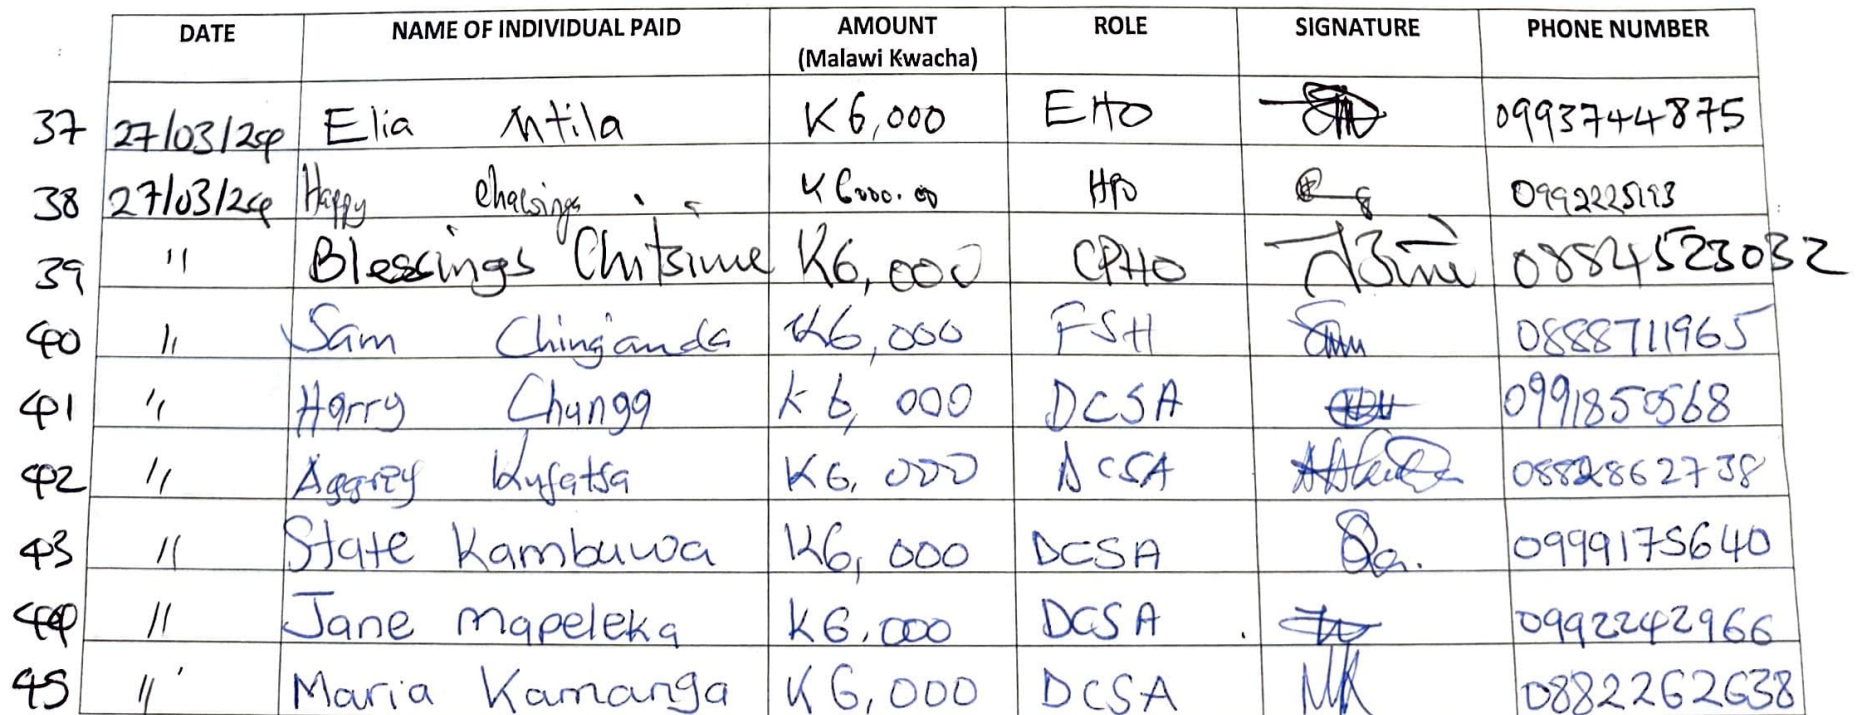 DATE NAME OF INDIVIDUAL PAID AMOUNT (Malawi Kwacha) ROLE SIGNATURE PHONE NUMBER
37 27/03/24 Elia Mtila K6,000 EHO 0993744875
38 27/03/24 Happy K6000.00 HPO
39 " Blessings Chitsime K6,000 CPHO 08884523032
40 " Sam Chinjanda K6,000 FSH 0888711965
41 " Harry Chunga K6,000 DCSA 0991850568
42 " Aggrey Kufatsa K6,000 ACSA 0882862738
43 " State Kambuwa K6,000 DCSA 0999175640
44 " Jane Mapeleka K6,000 DCSA 0992242966
45 " Maria Kamanga K6,000 DCSA MK 0882262638